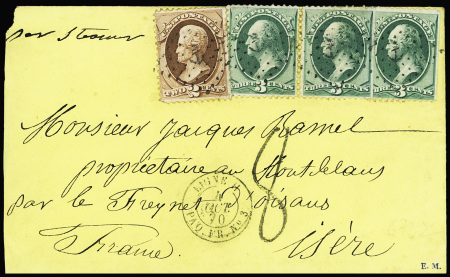 par Steamer
U.S. POSTAGE
TWO 2 CENTS
U.S. POSTAGE
THREE 3 CENTS
U.S. POSTAGE
THREE 3 CENTS
U.S. POSTAGE
THREE 3 CENTS
Monsieur Jacques Ramel
propriétaire au Montdelans
par le Freynet d'oisans
France Isère
8
LIGNE H
OCT.
70
PAQ. FR. No 3
E. M.